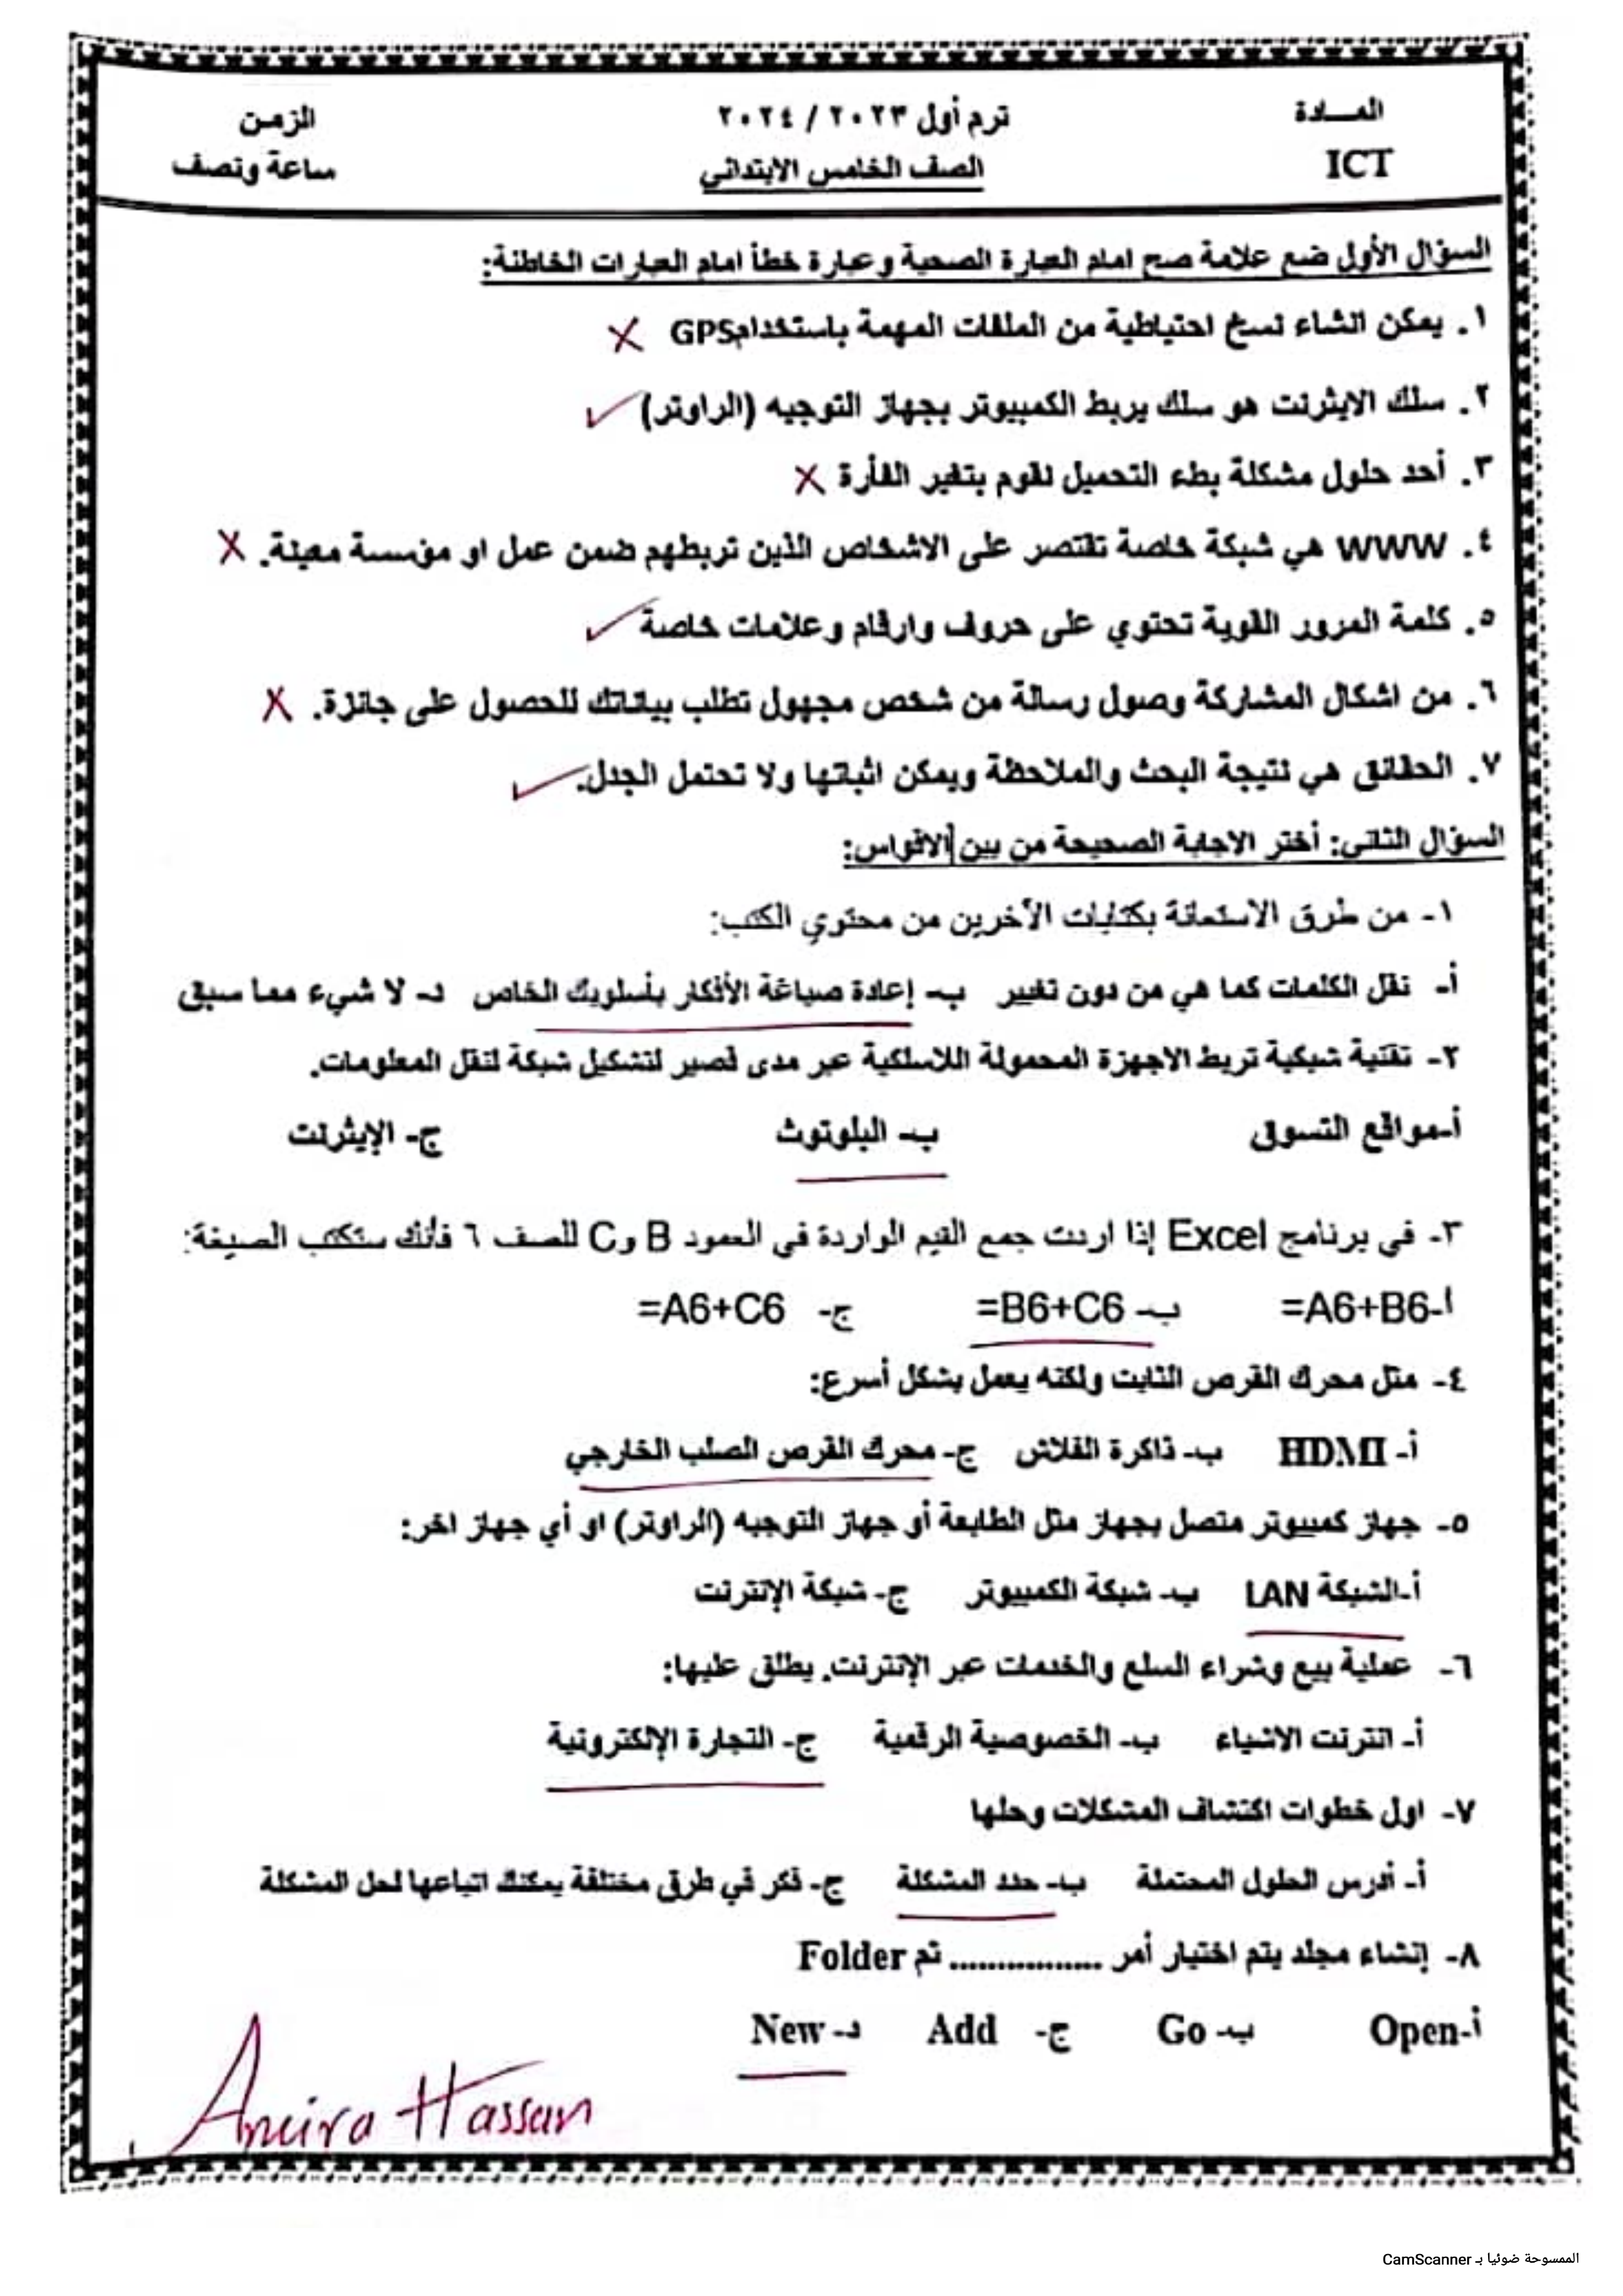 المـــادة
ICT
ترم أول ٢٠٢٣ / ٢٠٢٤
الصف الخامس الابتدائي
الزمن
ساعة ونصف
السؤال الأول ضع علامة صح امام العبارة الصحية وعبارة خطأ امام العبارات الخاطئة:
١. يمكن انشاء نسخ احتياطية من الملفات المهمة باستخدامGPS ✗
٢. سلك الايثرنت هو سلك يربط الكمبيوتر بجهاز التوجيه (الراوتر) ✓
٣. أحد حلول مشكلة بطء التحميل نقوم بتغير الفأرة ✗
٤. WWW هي شبكة خاصة تقتصر على الاشخاص الذين تربطهم ضمن عمل او مؤسسة معينة. ✗
٥. كلمة المرور القوية تحتوي على حروف وارقام وعلامات خاصة ✓
٦. من اشكال المشاركة وصول رسالة من شخص مجهول تطلب بياناتك للحصول على جائزة. ✗
٧. الحقائق هي نتيجة البحث والملاحظة ويمكن اثباتها ولا تحتمل الجدل. ✓
السؤال الثاني: أختر الاجابة الصحيحة من بين الاقواس:
١- من طرق الاستعانة بكتابات الآخرين من محتوي الكتب:
أ- نقل الكلمات كما هي من دون تغيير ب- إعادة صياغة الأفكار بأسلوبك الخاص د- لا شيء مما سبق
٢- تقنية شبكية تربط الاجهزة المحمولة اللاسلكية عبر مدى قصير لتشكيل شبكة لنقل المعلومات.
أ-مواقع التسوق ب- البلوتوث ج- الإيثرنت
٣- في برنامج Excel إذا اردت جمع القيم الواردة في العمود B وC للصف ٦ فأنك ستكتب الصيغة:
أ-A6+B6= ب- B6+C6= ج- A6+C6=
٤- مثل محرك القرص الثابت ولكنه يعمل بشكل أسرع:
أ- HDMI ب- ذاكرة الفلاش ج- محرك القرص الصلب الخارجي
٥- جهاز كمبيوتر متصل بجهاز مثل الطابعة أو جهاز التوجيه (الراوتر) او أي جهاز اخر:
أ-الشبكة LAN ب- شبكة الكمبيوتر ج- شبكة الإنترنت
٦- عملية بيع وشراء السلع والخدمات عبر الإنترنت. يطلق عليها:
أ- انترنت الاشياء ب- الخصوصية الرقمية ج- التجارة الإلكترونية
٧- اول خطوات اكتشاف المشكلات وحلها
أ- أدرس الحلول المحتملة ب- حدد المشكلة ج- فكر في طرق مختلفة يمكنك اتباعها لحل المشكلة
٨- إنشاء مجلد يتم اختيار أمر ................ ثم Folder
أ-Open ب- Go ج- Add د- New
Amira Hassan
الممسوحة ضوئيا بـ CamScanner